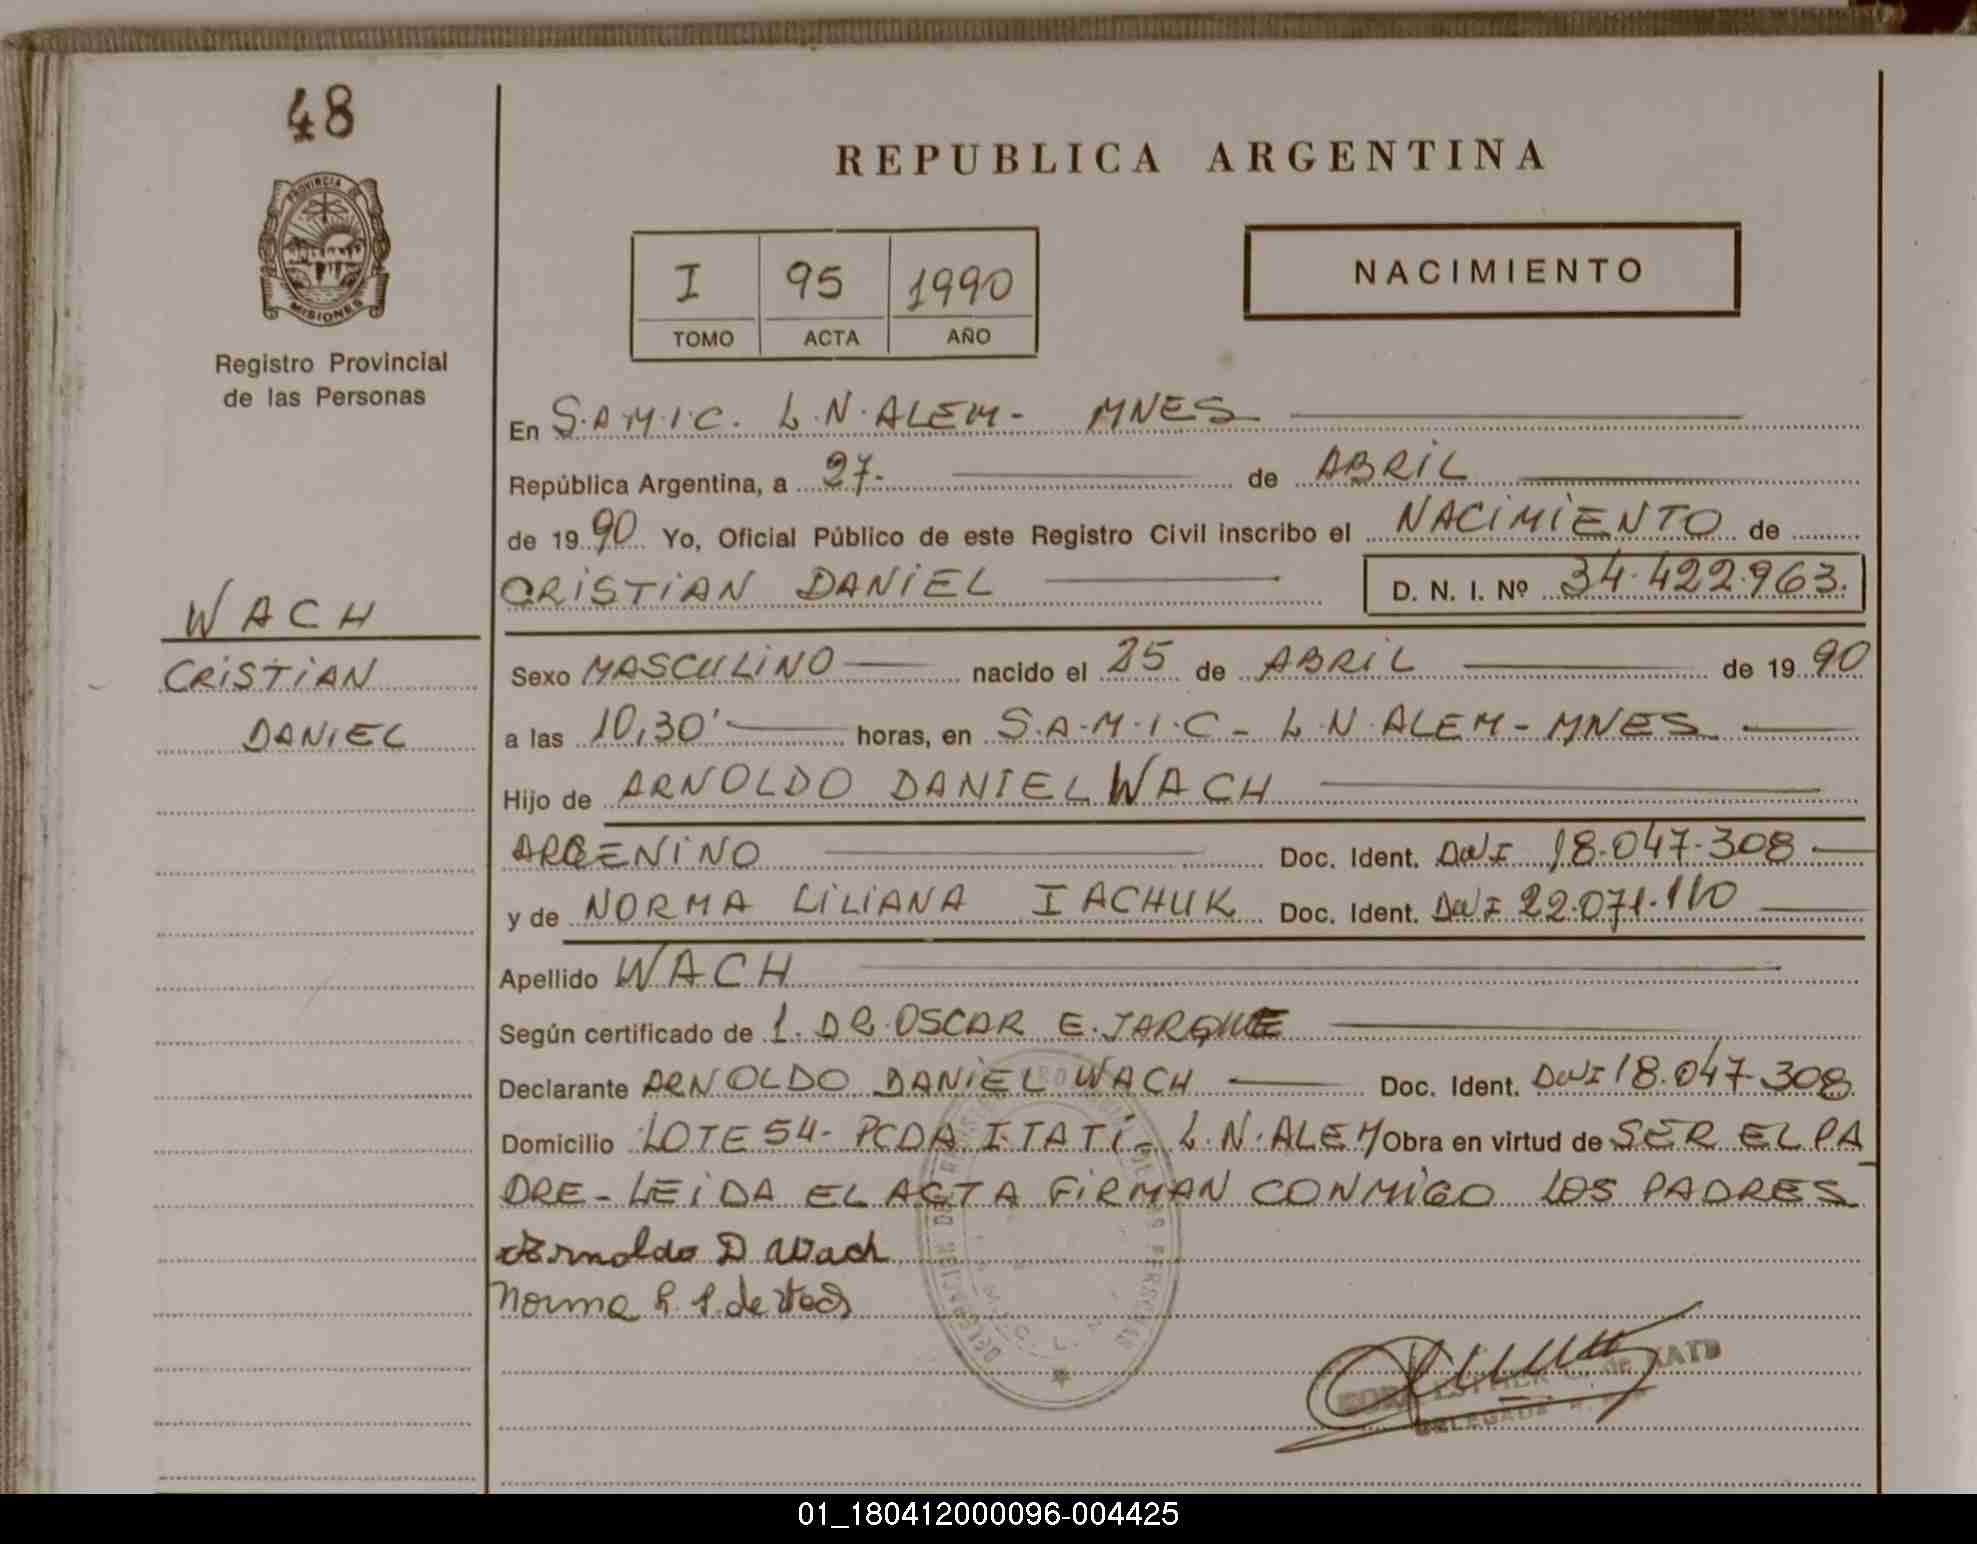 48
PROVINCIA DE
MISIONES
Registro Provincial
de las Personas
REPUBLICA ARGENTINA
I 95 1990
TOMO ACTA AÑO
NACIMIENTO
En S.A.M.I.C. L.N.ALEM- MNES
República Argentina, a 27- de ABRIL
de 1990 Yo, Oficial Público de este Registro Civil inscribo el NACIMIENTO de
CRISTIAN DANIEL D. N. I. Nº 34.422.963.
WACH
CRISTIAN
DANIEL
Sexo MASCULINO nacido el 25 de ABRIL de 1990
a las 10,30' horas, en S.A.M.I.C- L.N.ALEM-MNES
Hijo de ARNOLDO DANIEL WACH
ARGENINO Doc. Ident. DNI 18.047.308
y de NORMA LILIANA IACHUK Doc. Ident. DNI 22.071.110
Apellido WACH
Según certificado de 1. DR.OSCAR E. JARQUE
Declarante ARNOLDO DANIEL WACH Doc. Ident. DNI 18.047.308
Domicilio LOTE 54- PCDA ITATI- L.N.ALEM Obra en virtud de SER EL PA_
DRE- LEIDA EL ACTA FIRMAN CONMIGO LOS PADRES
Arnoldo D Wach
Norma L. I. de Wach
de KATZ
DELEGADA
01_180412000096-004425